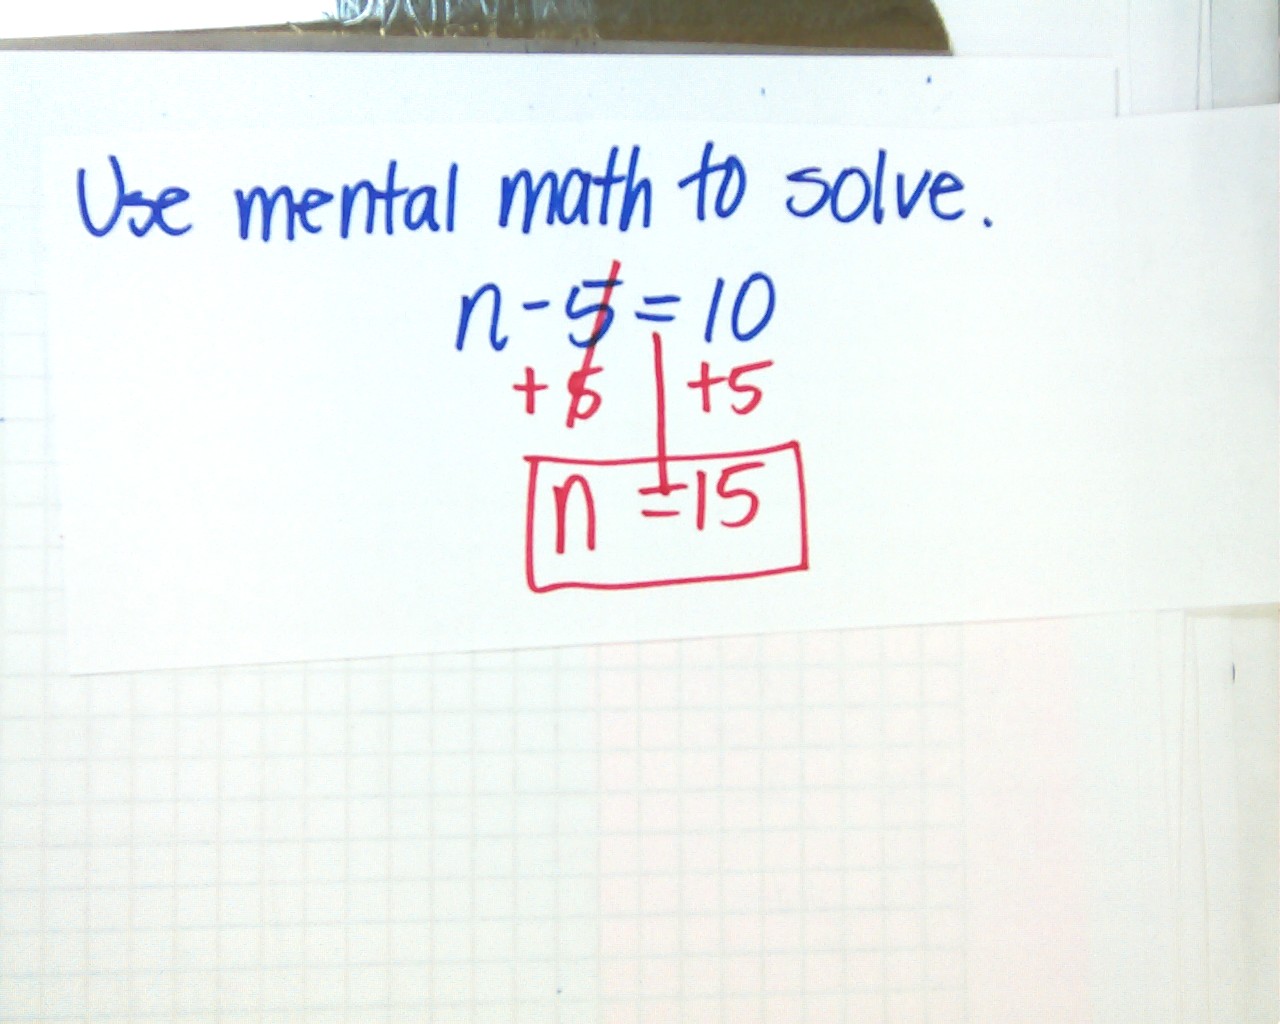 Use mental math to solve.
n - 5 = 10
+ 5 +5
n = 15